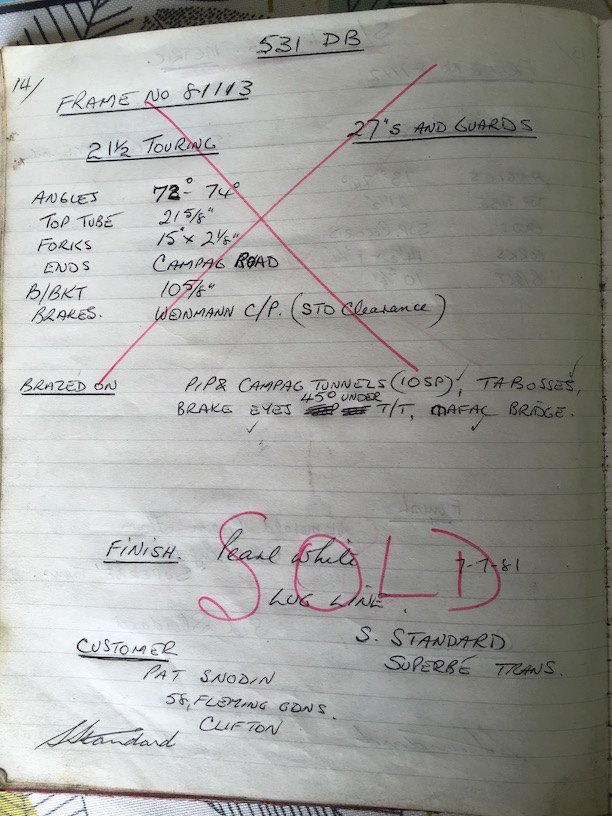 531 DB
14/
FRAME NO 81113
27"S AND GUARDS
21½ TOURING
ANGLES 72° - 74°
TOP TUBE 21 5/8"
FORKS 15" x 2 1/8"
ENDS CAMPAG ROAD
B/BKT 10 5/8"
BRAKES. WEINMANN C/P. (STD Clearance)
BRAZED ON P/P & CAMPAG TUNNELS (10SP), TA BOSSES,
45° UNDER
BRAKE EYES T/T, MAFAC BRIDGE.
FINISH. Pearl White 7-7-81
SOLD
LUG LINE.
S. STANDARD
SUPERBE TRANS.
CUSTOMER
PAT SNODIN
58, FLEMING GDNS.
CLIFTON
SStandard